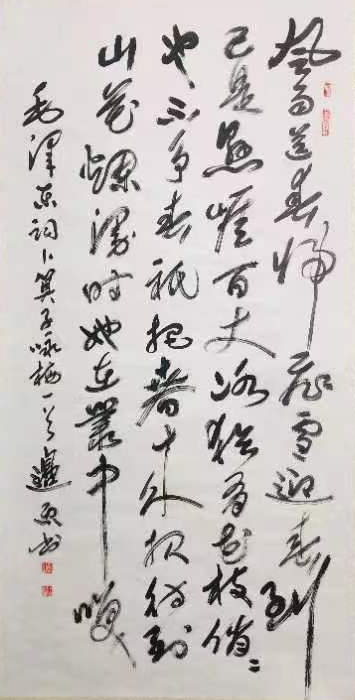 風雨送春归飛雪迎春到
已是懸崖百丈冰猶有花枝俏〻
也不争春祇把春来报待到
山花爛漫时她在叢中嘆
毛澤东词卜算子咏梅一首邊书